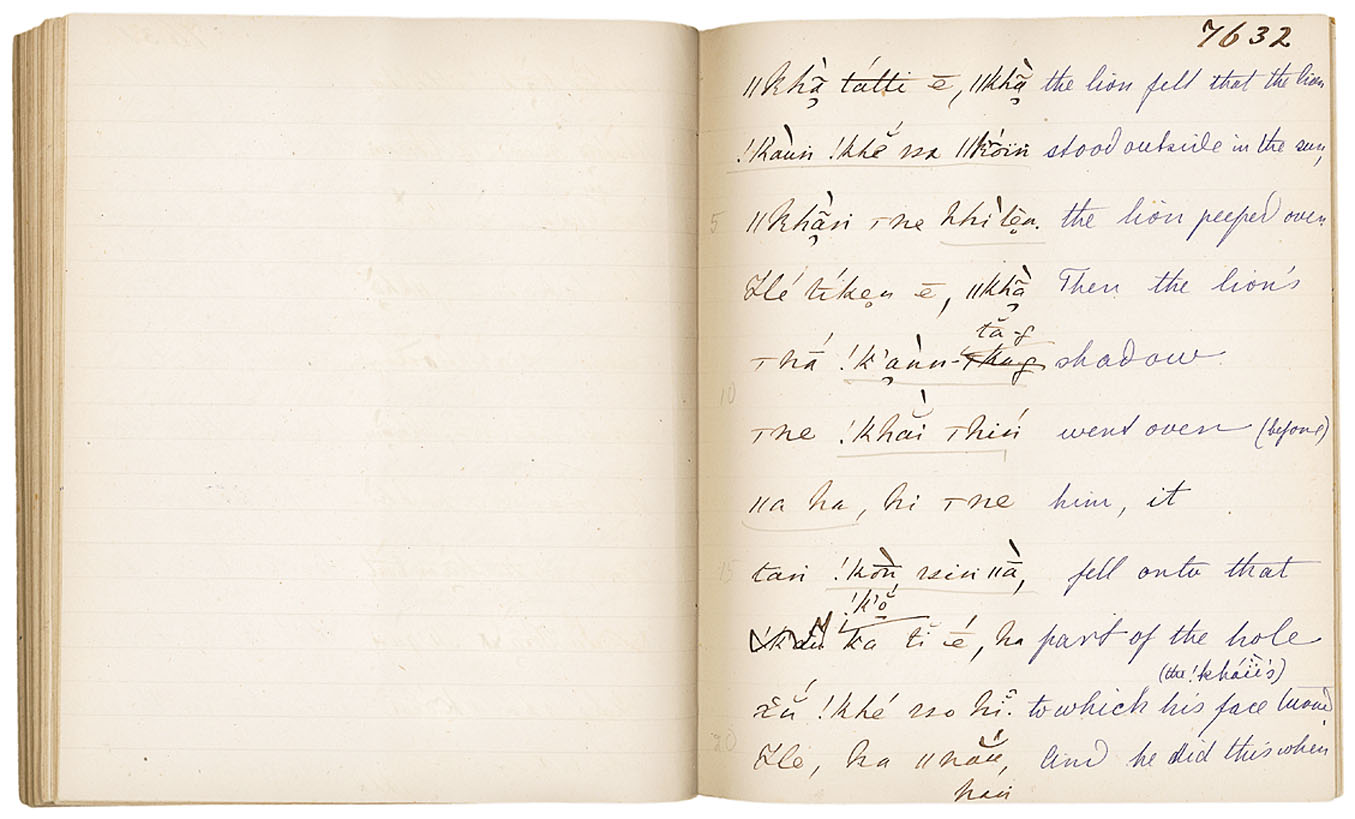 7632
ǁkhã̀ tátti ē, ǁkhã̀ the lion felt that the lion
!kàùn !khĕ́ ssa ǁkó̄ïn stood outside in the sun,
5 ǁkhã̀n ⊤ne khì lēn. the lion peeped over.
Hé tíken ē, ǁkhã̀ Then the lion's
tā̆-g
⊤há̄ !k'àùn- shadow
10
⊤ne !khăì ⊤hiń went over (beyond)
ǁa ha, hi ⊤ne him, it
15 tan !kòn̄ ssin ǁà, fell onto that
!k'ŏ
ka ti é̄, ha part of the hole
(the !khã́ïï's)
!khé sso hĭ. to which his face turned.
20 Hé, ha ǁnău, And he did this when
han